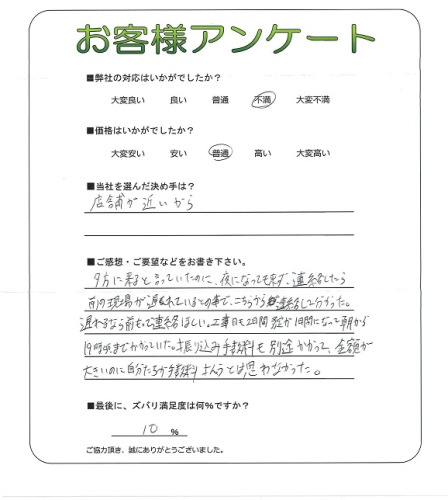 お客様アンケート
■弊社の対応はいかがでしたか？
大変良い 良い 普通 不満 大変不満
■価格はいかがでしたか？
大変安い 安い 普通 高い 大変高い
■当社を選んだ決め手は？
店舗が近いから
■ご感想・ご要望などをお書き下さい。
夕方に来ると言っていたのに、夜になっても来ず、連絡したら
前の現場が遅れているとの事で、こちらから連絡して分かった。
遅れるなら前もって連絡ほしい。工事日も2日間 が1日間になって朝から
19時頃までかかっていた。振り込み手数料も別途かかって、金額が
大きいのに自分たちが手数料 とは思わなかった。
■最後に、ズバリ満足度は何%ですか？
10 %
ご協力頂き、誠にありがとうございました。